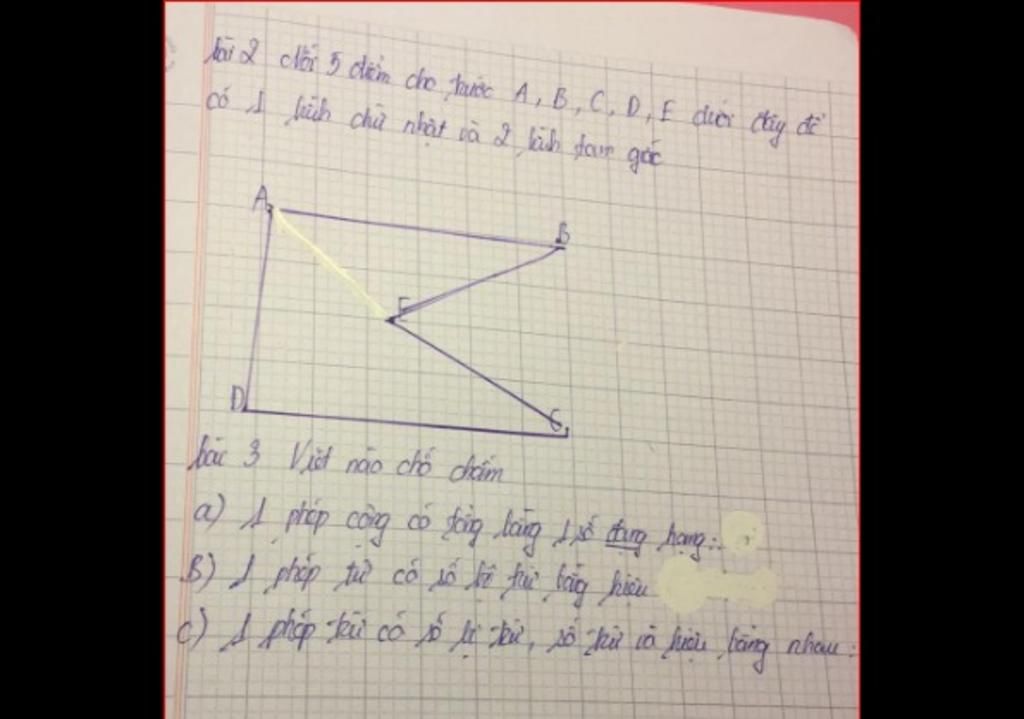 bài 2 nối 5 điểm cho trước A, B, C, D, E dưới đây để
có 1 hình chữ nhật và 2 hình tam giác
A
B
E
D
C
bài 3 Viết vào chỗ chấm
a) 1 phép cộng có tổng bằng 1 số hạng:
B) 1 phép trừ có số bị trừ bằng hiệu
c) 1 phép trừ có số bị trừ, số trừ và hiệu bằng nhau: